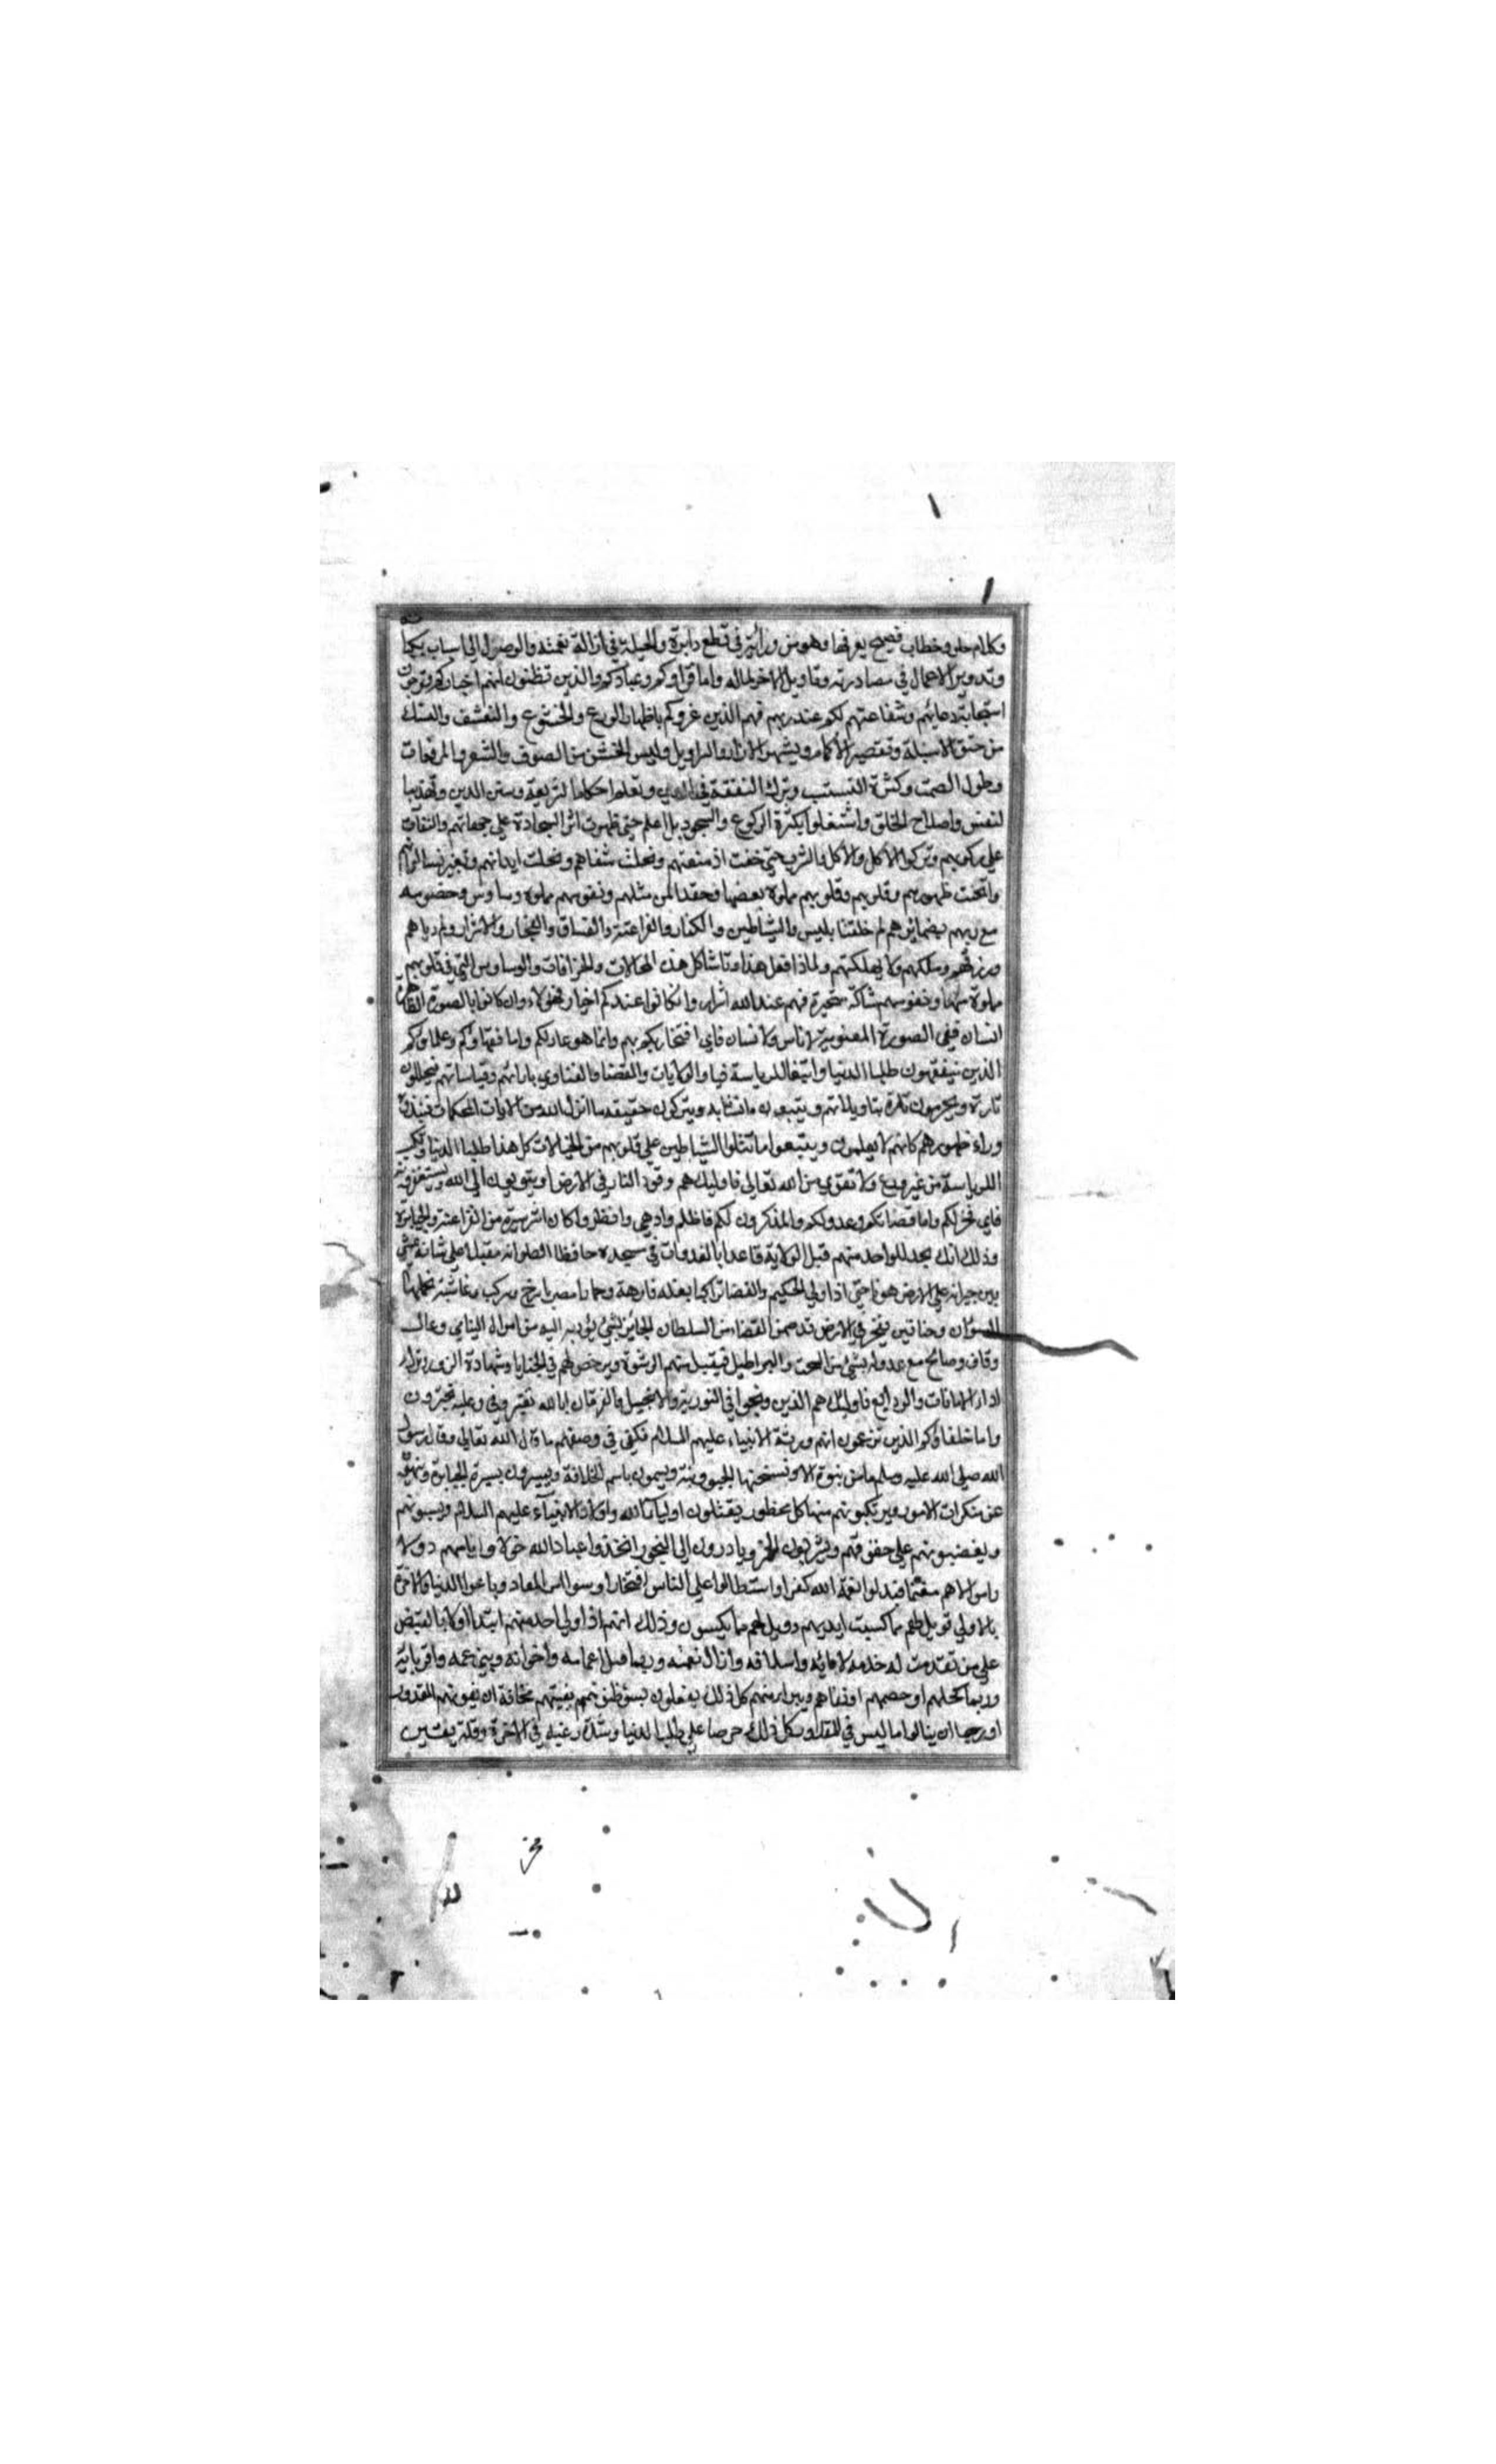 وكلام حلو وخطاب فصيح يعرفها وهو من ورائهم في قطع دابره والحيلة في ازالة نعمته والوصول الى اسباب نكبا
وتدوير الاعمال في مصادرته وتاويل الاخر لماله واما قراوكم وعبادكم والذين تظنون انهم اخياركم وترجون
استجابة دعائهم وشفاعتهم لكم عند ربهم فهم الذين غروكم باظهار الورع والخشوع والتقشف والنسك
من حتق الاسبلة وتقصير الاكمام وتشمير الازار والسراويل ولبس الخشن من الصوف والشعر والمرقعات
وطول الصمت وكثرة التنسك وترك التفقه في الدين وتعلم احكام الشريعة وسنن الدين وتهذيب
لنفس واصلاح الخلق واشتغلوا بكثرة الركوع والسجود بلا علم حتى ظهرت اثر السجادة على جبهاتهم والثفنات
على ركبهم وتركوا الاكل والاكل والشرب حتى خفت ادمغتهم ونحلت شفاههم ونحلت ابدانهم وتغيرت الوانهم
وانحنت ظهورهم وقلوبهم وقلوبهم مملوة بغضا وحقدا لمن مثلهم ونفوسهم مملوة وساوس وخصومه
مع ربهم بضمائرهم لم خلقت ابليس والشياطين والكفار والفراعنة والفساق والفجار والاشرار ولم رباهم
ورزقهم ومكنهم ولا يهلكهم ولماذا فعل هذا وما شاكل هذه المحالات والخرافات والوساوس التي في قلوبهم
مملوة منها ونفوسهم شاكة متحيرة فهم عند الله اشرار وان كانوا عندكم اخيار فهولاء وان كانوا بالصورة الظاهرة
انسان ففي الصورة المعنوية لا ناس ولا انسان فاي افتخار لكم بهم وانما هو عار لكم واما فقهاوكم وعلماوكم
الذين يتفقهون طلبا للدنيا وابتغا للرياسة فيها والولايات والقضا والفتاوي بارائهم وقياساتهم فيحللون
تارة ويحرمون تارة بتاويلاتهم ويتبعون ما تشابه ويتركون حقيقة ما انزل الله من الايات المحكمات فنبذوه
وراء ظهورهم كانهم لا يعلمون ويتبعوا ما تتلوا الشياطين على قلوبهم من الخيالات كل هذا طلبا للدنيا وتكسب
للرياسة من غير ورع ولا تقوى من الله تعالى فاوليك هم وقود النار في الارض او يتوبون الى الله ويستغفرونه
فاي فخر لكم واما قضاتكم وعدولكم والمذكرون لكم فاظلم وادهى وافظر واكان اشر سيرة من الفراعنة والجبابرة
وذلك انك تجد الواحد منهم قبل الولاية قاعدا بالغدوات في مسجده حافظا لصلوانه مقبلا على شانه يمشي
بين جيرانه على الارض هونا حتى اذا ولي الحكم والقضا تراه راكبا بغلة فارهة وحمارا مصريا بسرج ومركب وغاشية تحملها
السودان وحناتين يتبختر في الارض قد ضمن القضا من السلطان الجائر بشي يؤديه اليه من اموال اليتامى ومال
وقاف وصالح مع عدوله بشي من السحت والبراطيل فيقبل منهم الرشوة ويرخص لهم في الخيانا وشهادة الزور وترك
اداء الامانات والودايع فاوليك هم الذين وبخوا في التورية والانجيل والفرقان ابالله تفترون وعليه تجترون
واما خلفاؤكم الذين تزعمون انهم ورثة الانبياء عليهم السلام فكفى في وصفهم ما قال الله تعالى وقال رسول
الله صلى الله عليه وسلم ما من نبوة الا ونسختها الجبروتية ويسمون باسم الخلافة ويسيرون بسيرة الجبابرة وينهون
عن منكرات الامور ويرتكبونهم منها كل محظور يقتلون اولياء الله واولاد الانبيآء عليهم السلام ويسبونهم
ويغصبونهم على حقوقهم ويشربون الخمر ويبادرون الى الفجور اتخذوا عباد الله خولا وايامهم دولا
واموالهم مغنما فبدلوا نعمة الله كفرا واستطالوا على الناس افتخارا ونسوا امر المعاد وباعوا الدنيا والاخرة
بالاولى فويل لهم مما كسبت ايديهم وويل لهم مما يكسبون وذلك انهم اذا ولي احد منهم ابتدا اولا بالقبض
على من تقدمت له خدمة لابائه واسلافه وازال نعمته وربما قتل اعمامه واخوانه وبني عمه واقربايه
وربما كحلهم او حبسهم او نفاهم وتبرا منهم كل ذلك يفعلون بسوء ظنونهم بغيتهم مخافة ان يفوتهم المقدور
او رجا ان ينالوا ما ليس في المقدور كل ذلك حرصا على طلب الدنيا وشدة رغبة في الاخرة وقلة يقين